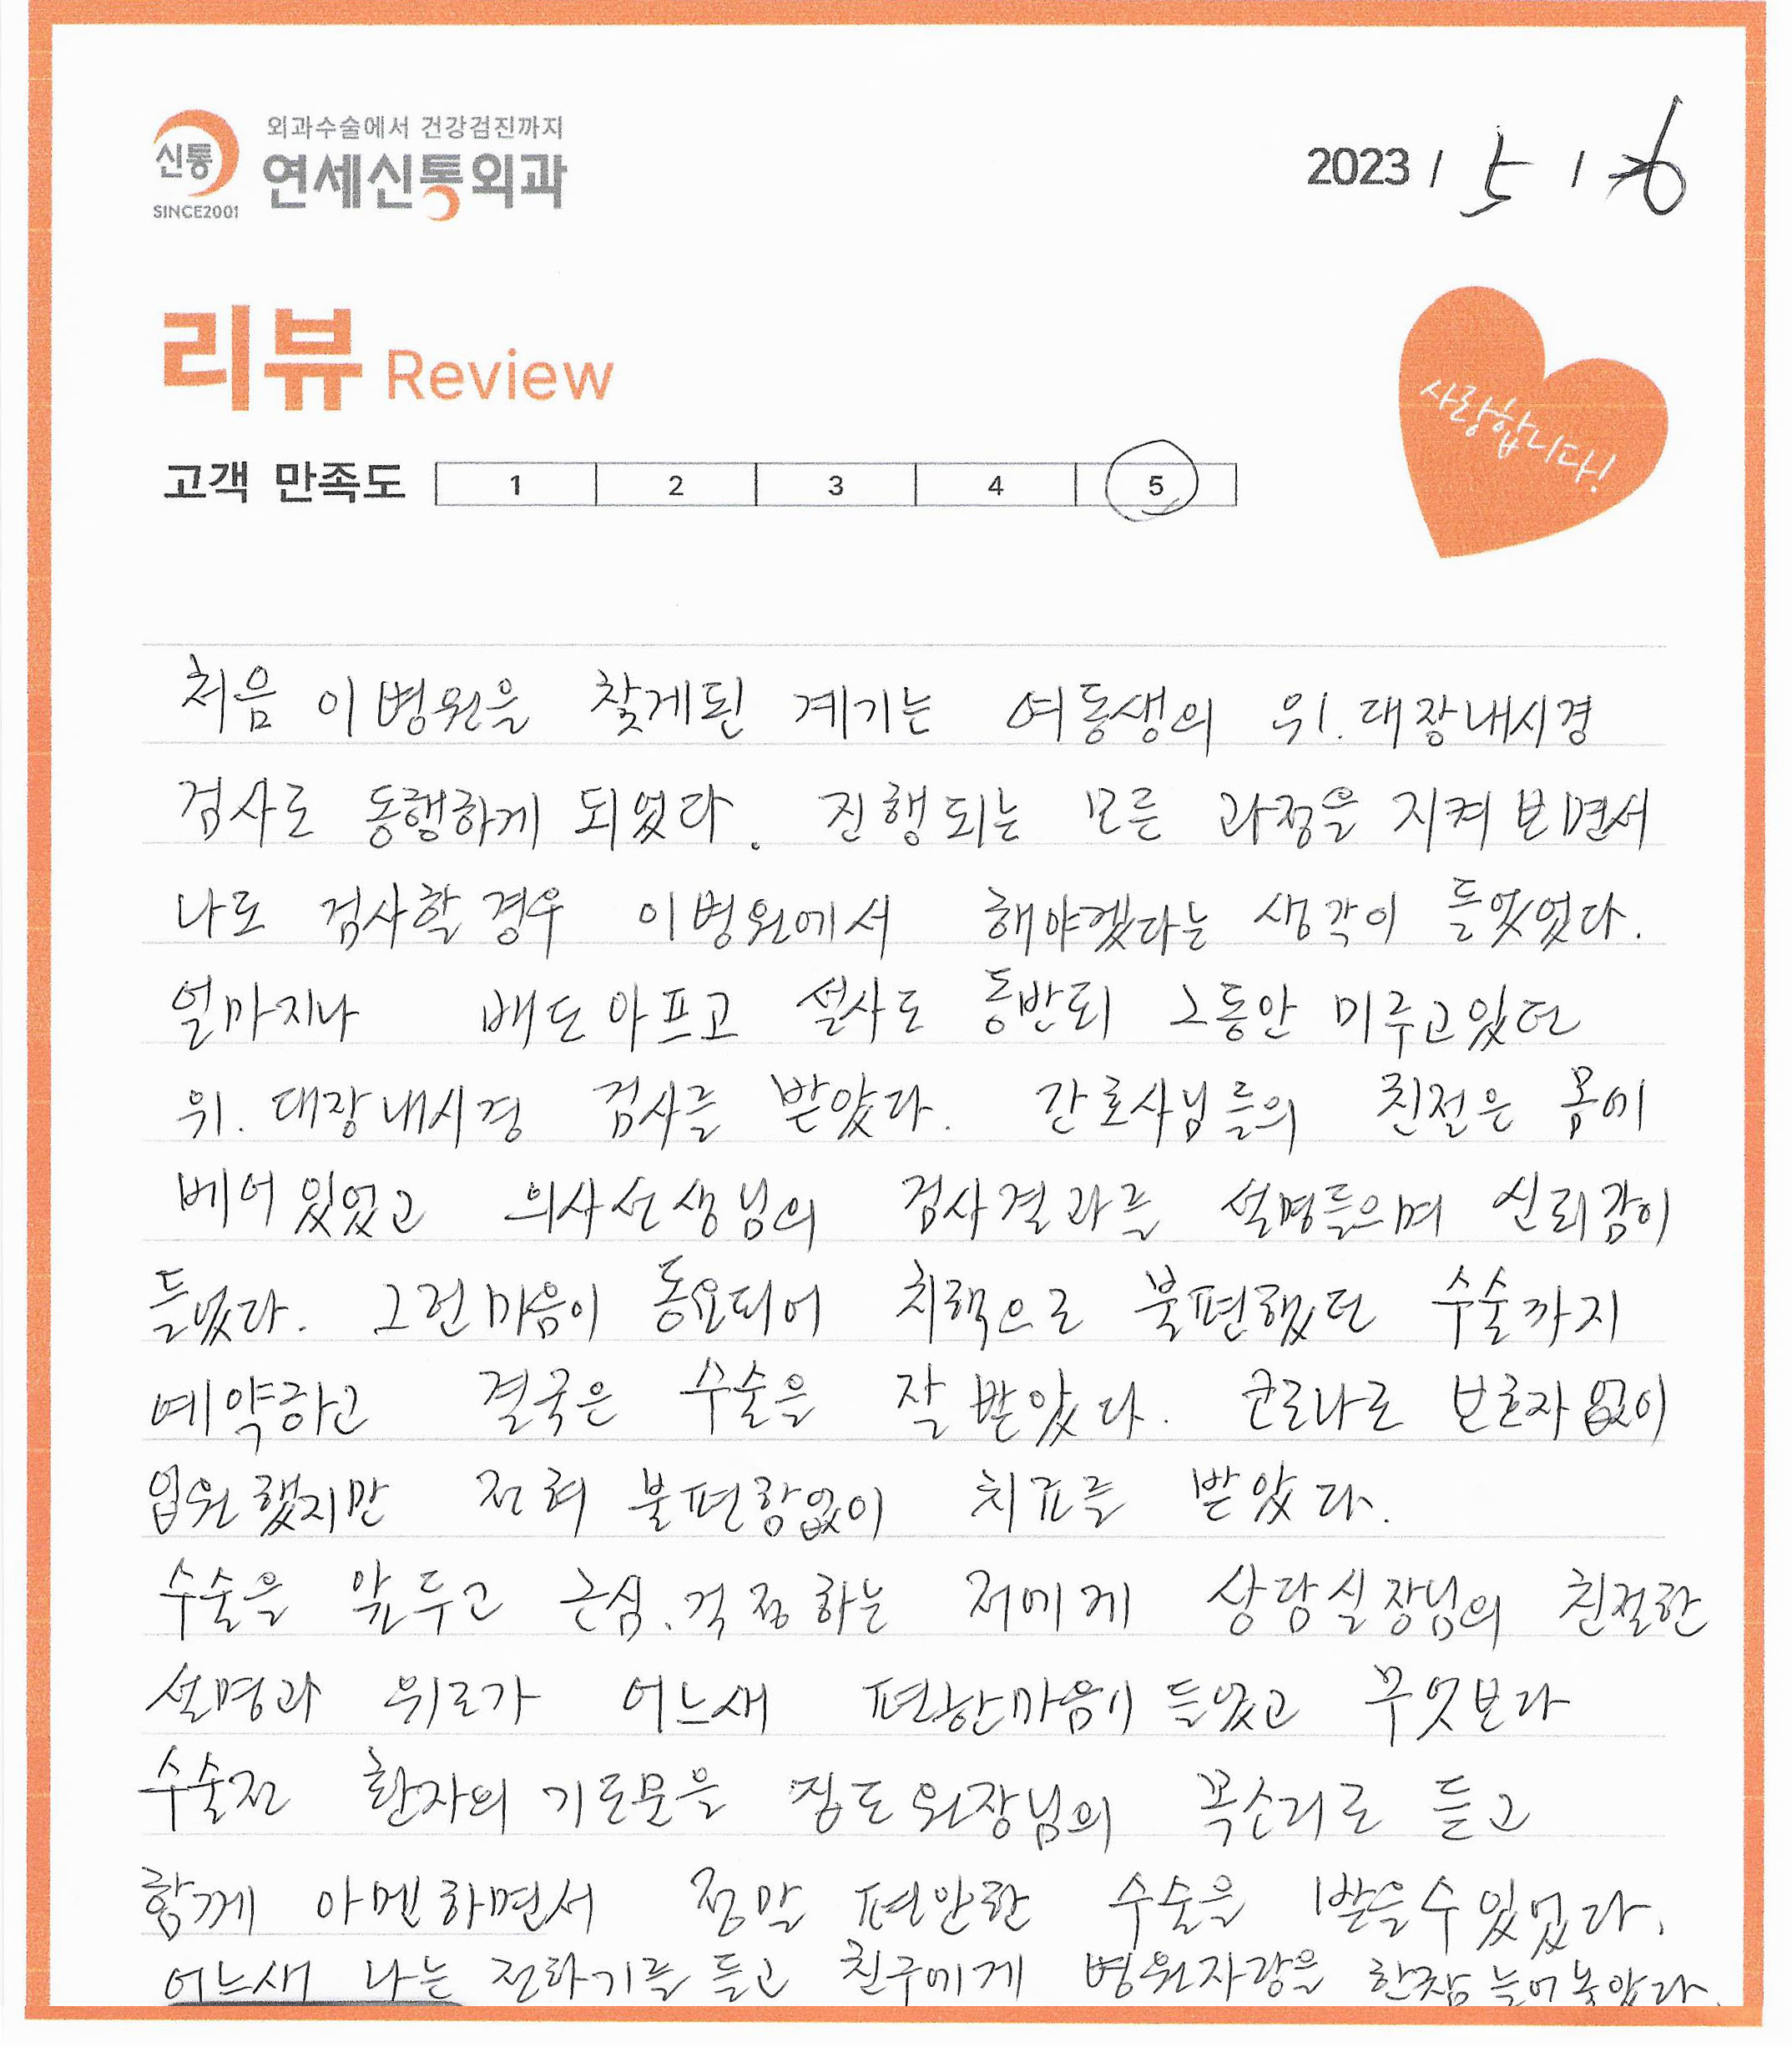 외과수술에서 건강검진까지
신통 연세신통외과
SINCE2001
2023 / 5 / 6
리뷰 Review
사랑합니다!
고객 만족도 1 2 3 4 5
처음 이 병원을 찾게된 계기는 여동생의 위.대장내시경
검사로 동행하게 되었다. 진행되는 모든 과정을 지켜보면서
나도 검사할 경우 이병원에서 해야겠다는 생각이 들었었다.
얼마지나 배도아프고 설사도 동반되 그동안 미루고있던
위.대장내시경 검사를 받았다. 간호사님들의 친절은 몸에
베어있었고 의사선생님의 검사결과를 설명들으며 신뢰감이
들었다. 그런마음이 동요되어 치핵으로 불편했던 수술까지
예약하고 결국은 수술을 잘 받았다. 코로나로 보호자없이
입원했지만 전혀 불편함없이 치료를 받았다.
수술을 앞두고 근심.걱정하는 저에게 상담실장님의 친절한
설명과 위로가 어느새 편한마음이 들었고 무엇보다
수술전 환자의 기도문을 집도원장님의 목소리로 듣고
함께 아멘하면서 정말 편안한 수술을 받을수있었다.
어느새 나는 전화기를 들고 친구에게 병원자랑을 한참 늘어놓았다.